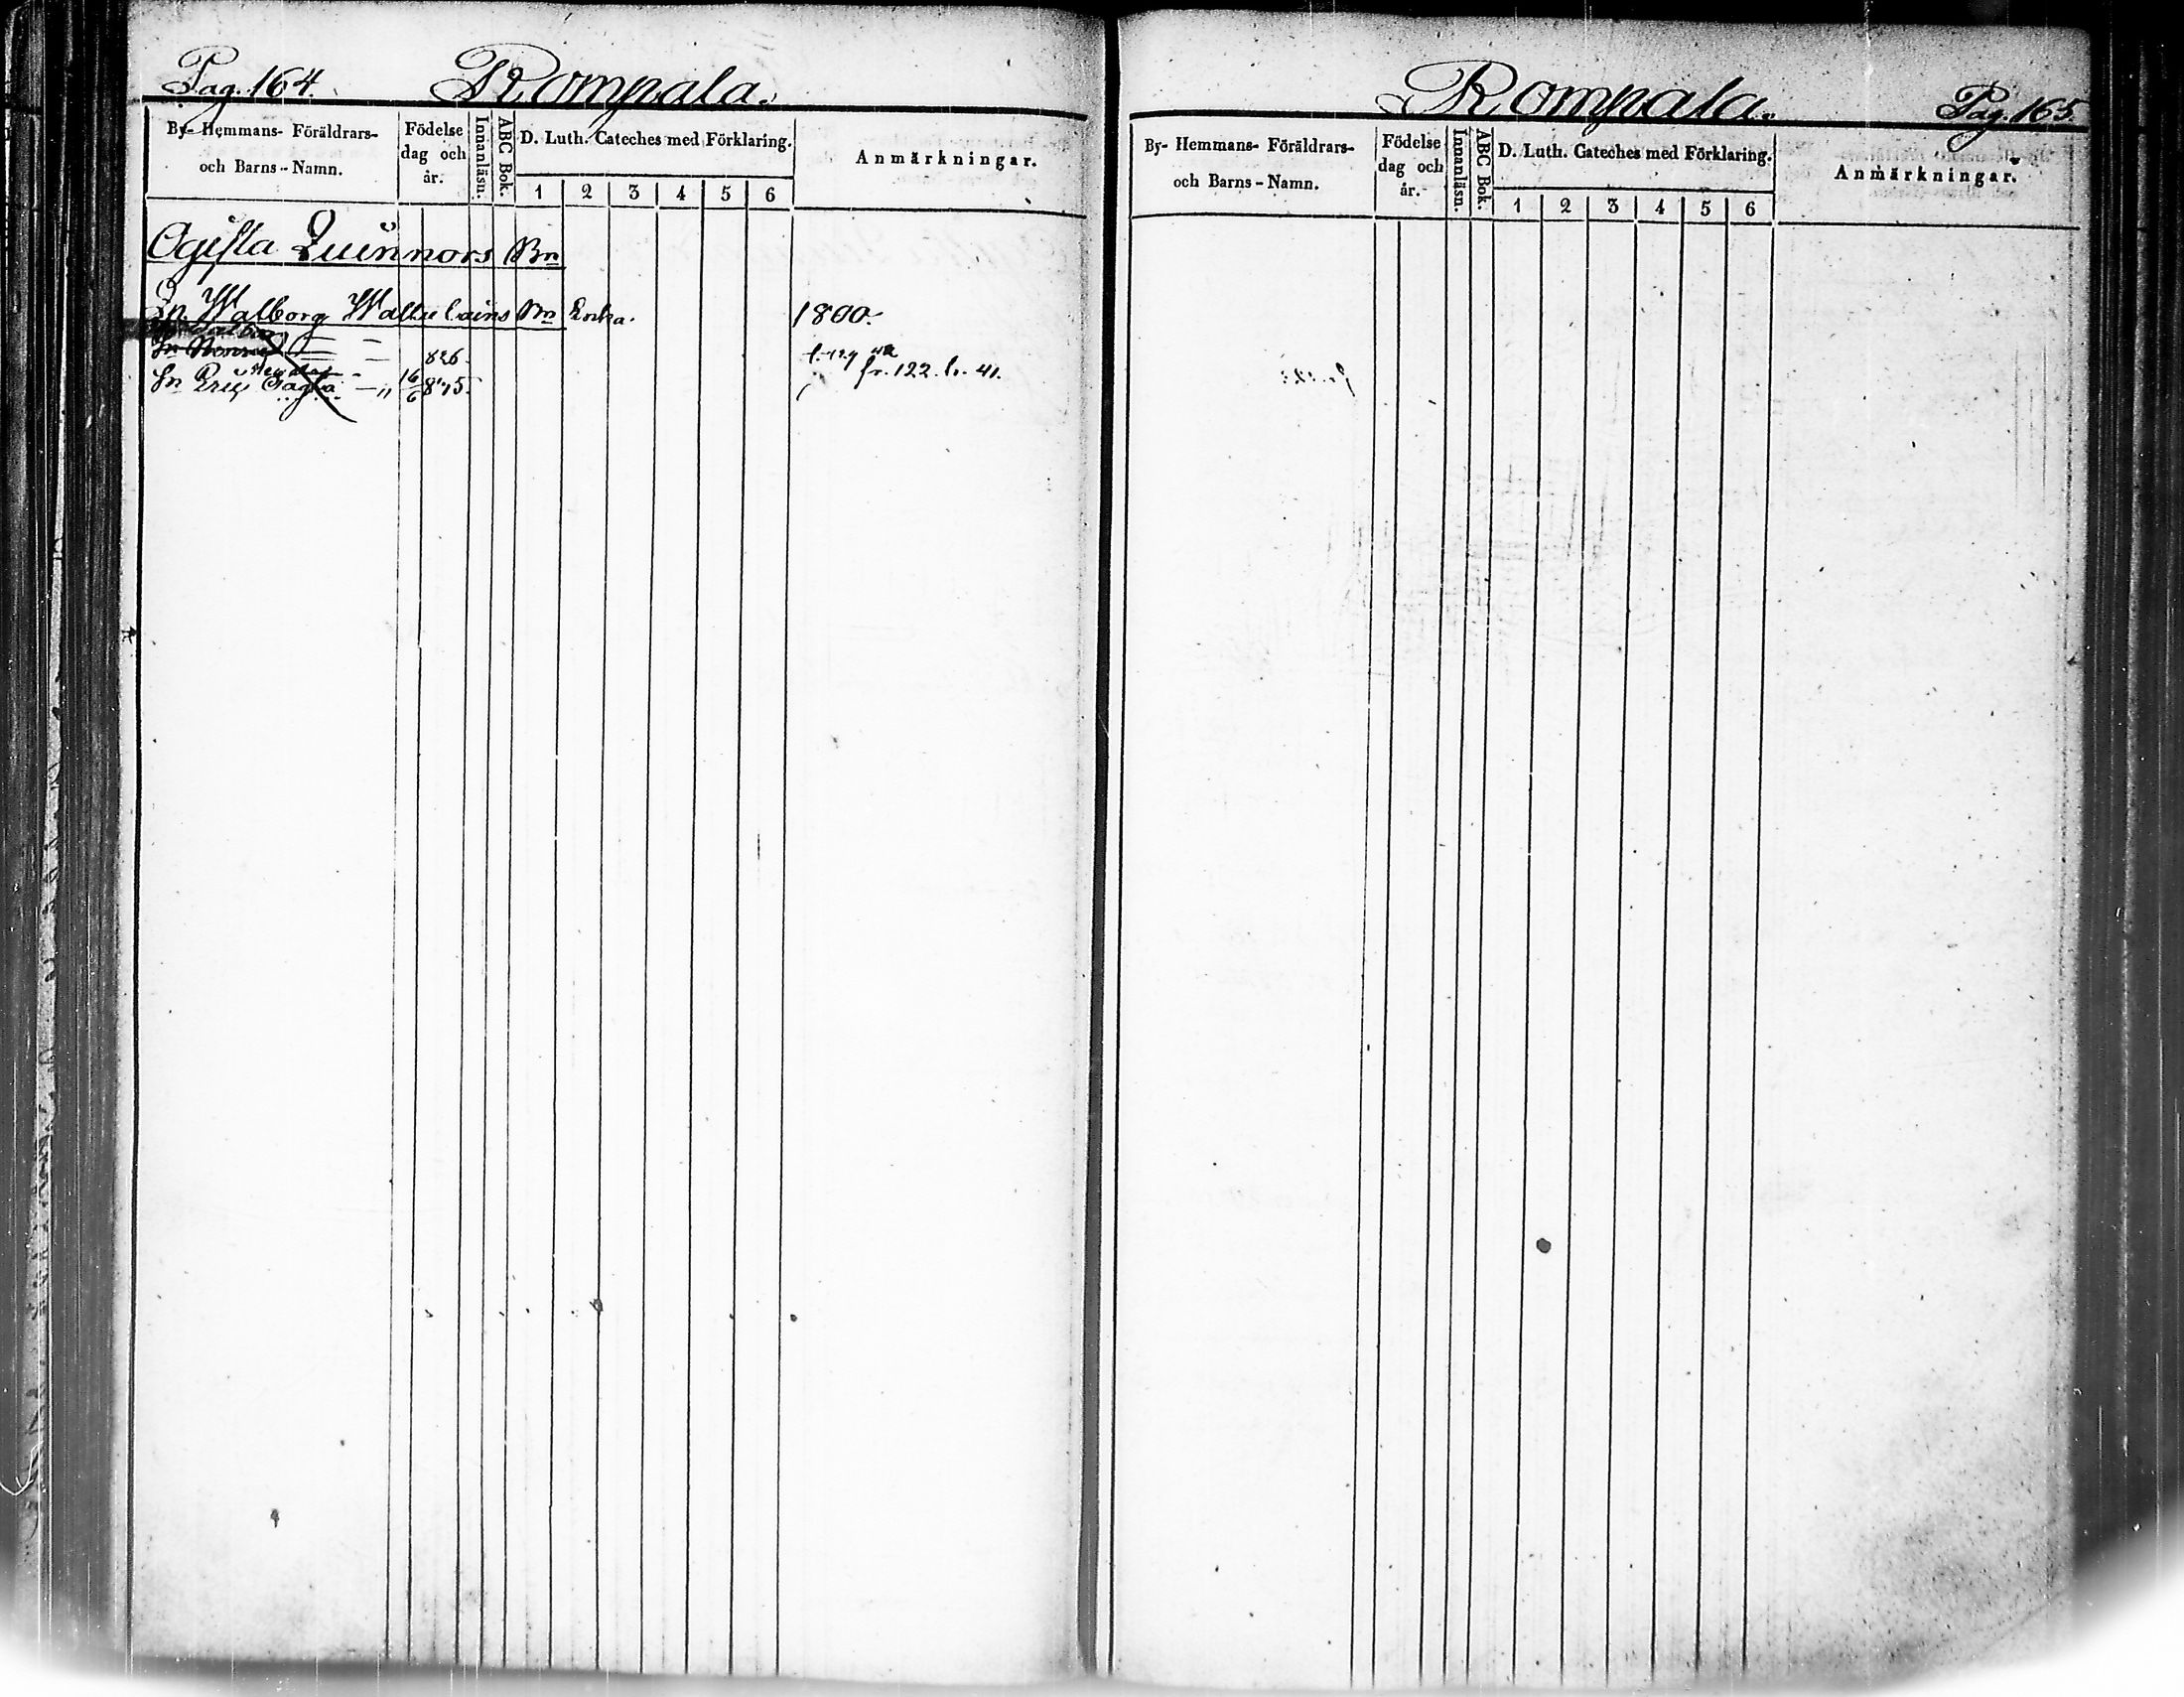 Pag. 164. Rompala.
By- Hemmans- Föräldrars-
och Barns-Namn.
Födelse
dag och
år.
Innanläsn.
ABC Bok.
D. Luth. Cateches med Förklaring.
1 2 3 4 5 6
Anmärkningar.
Ogifta Quinnors Bn
Walborg Enka. 1800.
826.
Sn Eric 16/6 845. fr. 122. 41.
Rompala. Pag. 165.
By- Hemmans- Föräldrars-
och Barns-Namn.
Födelse
dag och
år.
Innanläsn.
ABC Bok.
D. Luth. Cateches med Förklaring.
1 2 3 4 5 6
Anmärkningar.